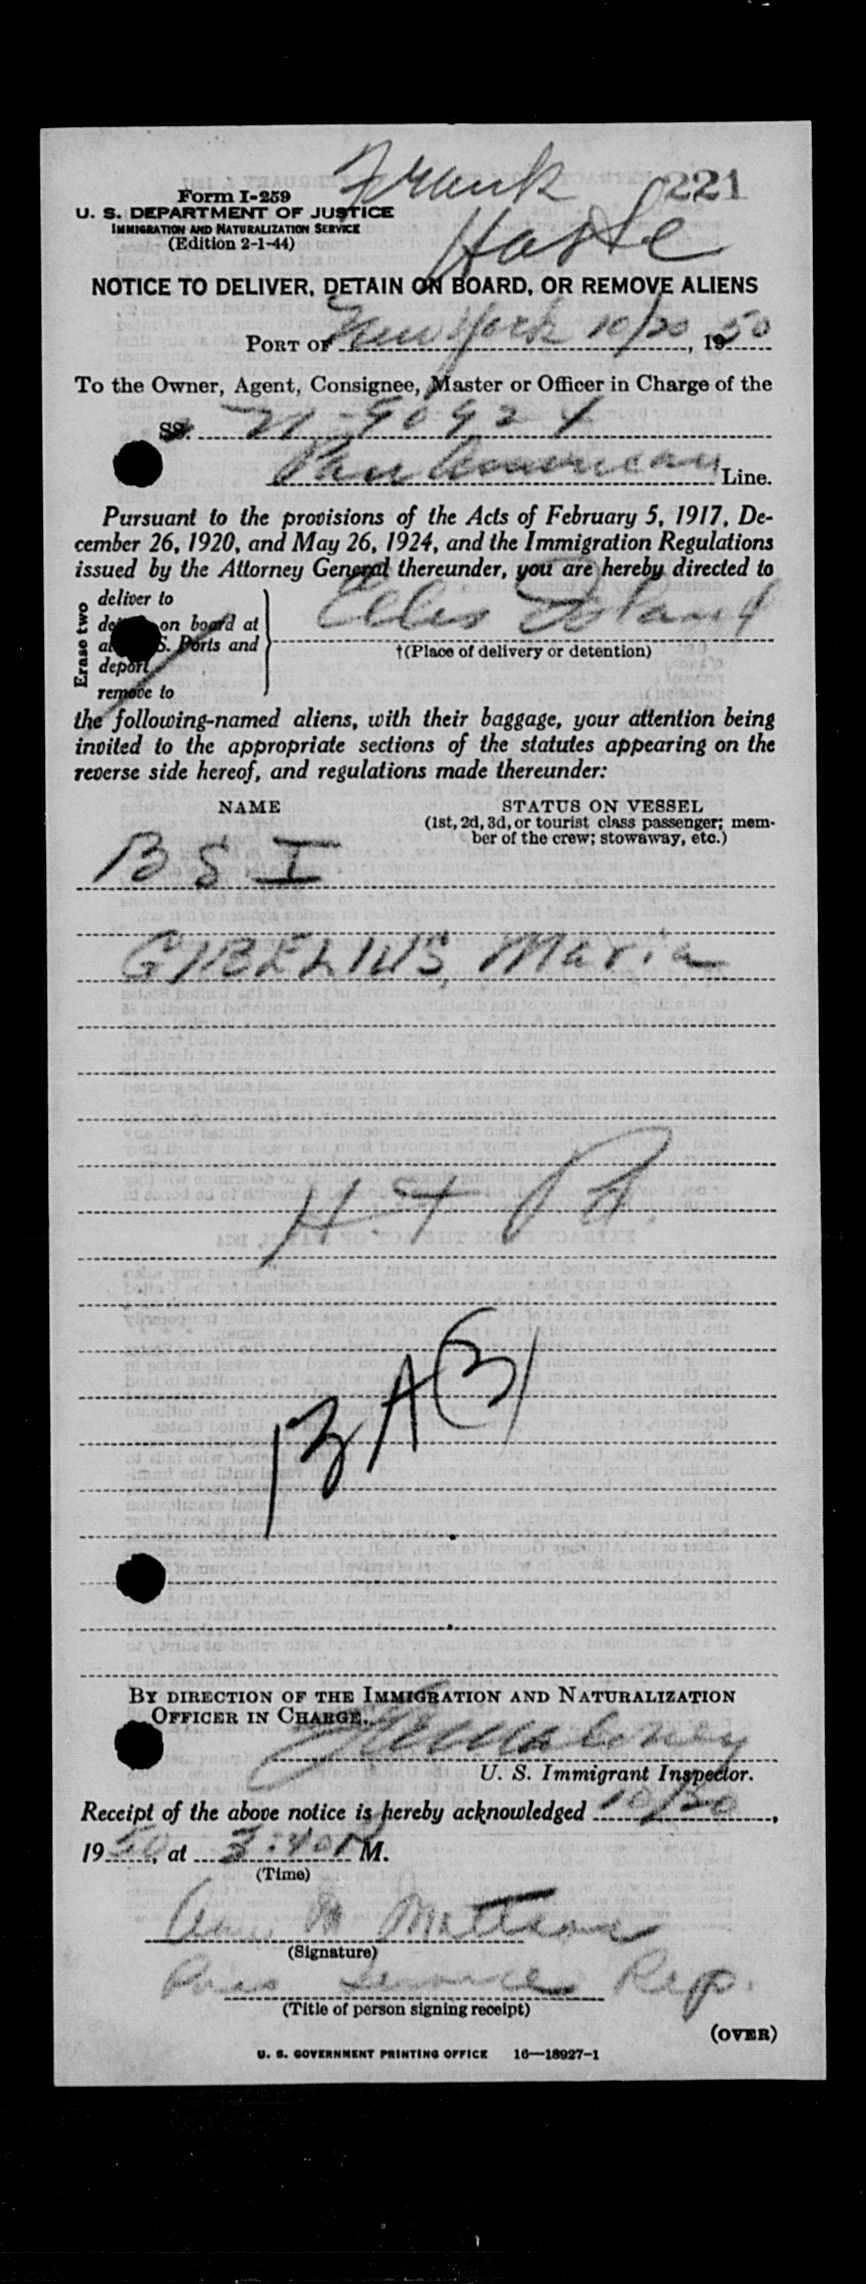 Form I-259
U. S. DEPARTMENT OF JUSTICE
IMMIGRATION AND NATURALIZATION SERVICE
(Edition 2-1-44)
Frank
221
NOTICE TO DELIVER, DETAIN ON BOARD, OR REMOVE ALIENS
PORT OF New York 10/20, 1950
To the Owner, Agent, Consignee, Master or Officer in Charge of the
SS.
Pan American Line.
Pursuant to the provisions of the Acts of February 5, 1917, De-
cember 26, 1920, and May 26, 1924, and the Immigration Regulations
issued by the Attorney General thereunder, you are hereby directed to
Erase two
deliver to
on board at
S. Ports and
deport
remove to
Ellis Island
†(Place of delivery or detention)
the following-named aliens, with their baggage, your attention being
invited to the appropriate sections of the statutes appearing on the
reverse side hereof, and regulations made thereunder:
NAME STATUS ON VESSEL
(1st, 2d, 3d, or tourist class passenger; mem-
ber of the crew; stowaway, etc.)
B S I
GIBELIUS, Maria
BY DIRECTION OF THE IMMIGRATION AND NATURALIZATION
OFFICER IN CHARGE.
Maloney
U. S. Immigrant Inspector.
Receipt of the above notice is hereby acknowledged 10/20,
1950, at 3:40 P M.
(Time)
Ann M Mattson
(Signature)
Pass Service Rep.
(Title of person signing receipt)
(OVER)
U. S. GOVERNMENT PRINTING OFFICE 16—18927-1